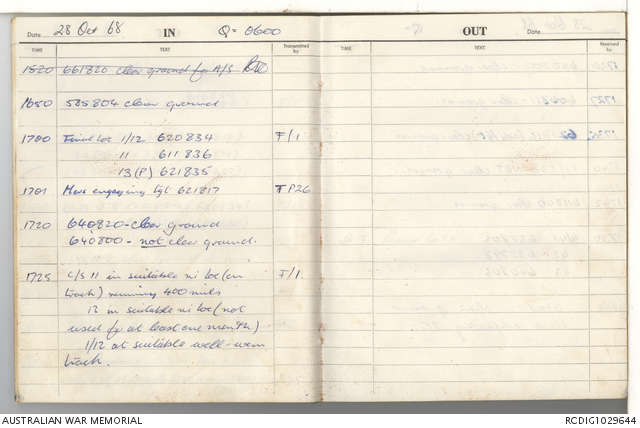 Date 28 Oct 68 IN Q = 0600
TIME TEXT Transmitted by
1520 661820 clear ground for A/S
1650 585804 clear ground
1700 Final loc 1/12 620834 T/1
11 611836
13(P) 621835
1701 Mors engaging tgt 621817 TP26
1720 640820 - clear ground
640800 - not clear ground.
1725 C/S 11 in suitable ni loc (on T/1
track) running 400 mils
12 in suitable ni loc (not
used for at least one month)
1/12 at suitable well-worn
track.
OUT Date
TIME TEXT Received by
AUSTRALIAN WAR MEMORIAL RCDIG1029644